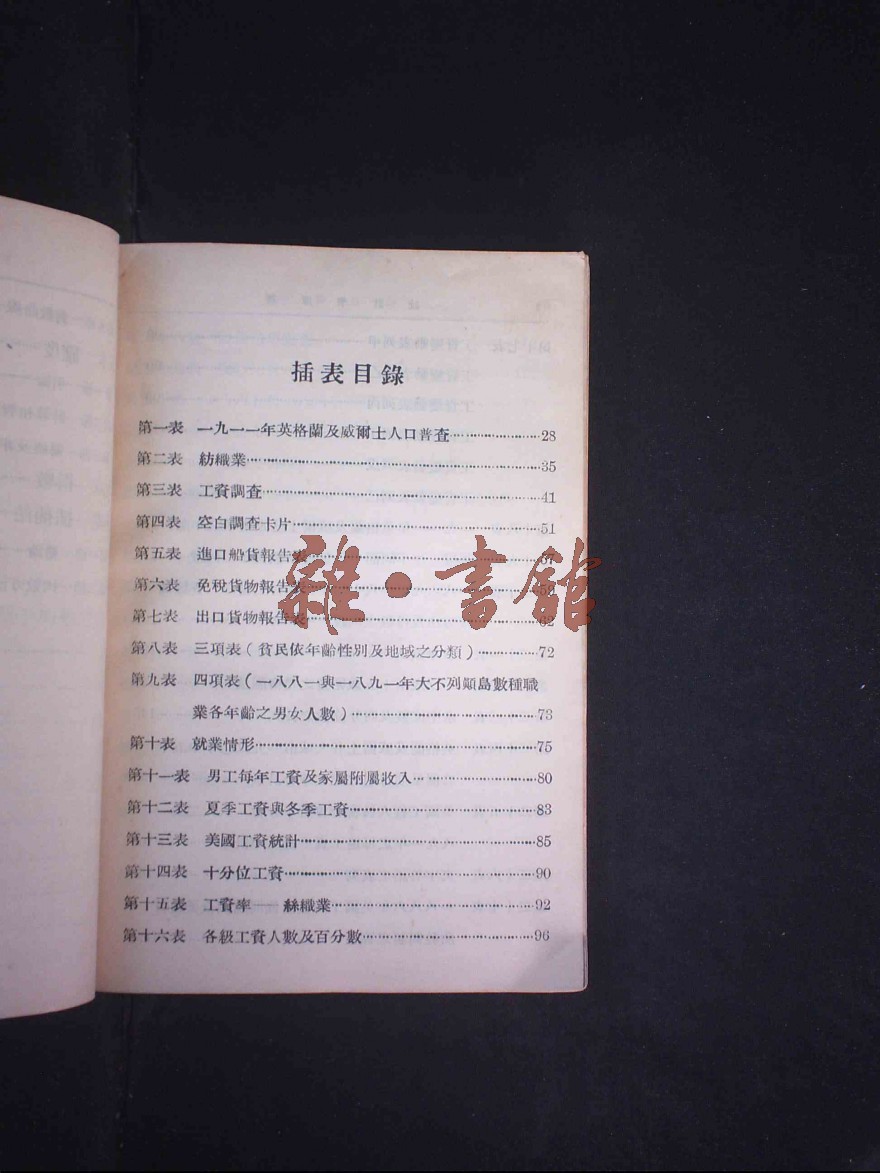 插表目錄
第一表 一九一一年英格蘭及威爾士人口普查…………………28
第二表 紡織業…………………35
第三表 工資調查…………………41
第四表 空白調查卡片…………………51
第五表 進口船貨報告表…………………57
第六表 免稅貨物報告表
第七表 出口貨物報告表…………………62
第八表 三項表(貧民依年齡性別及地域之分類)…………………72
第九表 四項表(一八八一與一八九一年大不列顛島數種職
業各年齡之男女人數)…………………73
第十表 就業情形…………………75
第十一表 男工每年工資及家屬附屬收入…………………80
第十二表 夏季工資與冬季工資…………………83
第十三表 美國工資統計…………………85
第十四表 十分位工資…………………90
第十五表 工資率——絲織業…………………92
第十六表 各級工資人數及百分數…………………96
雜·書館